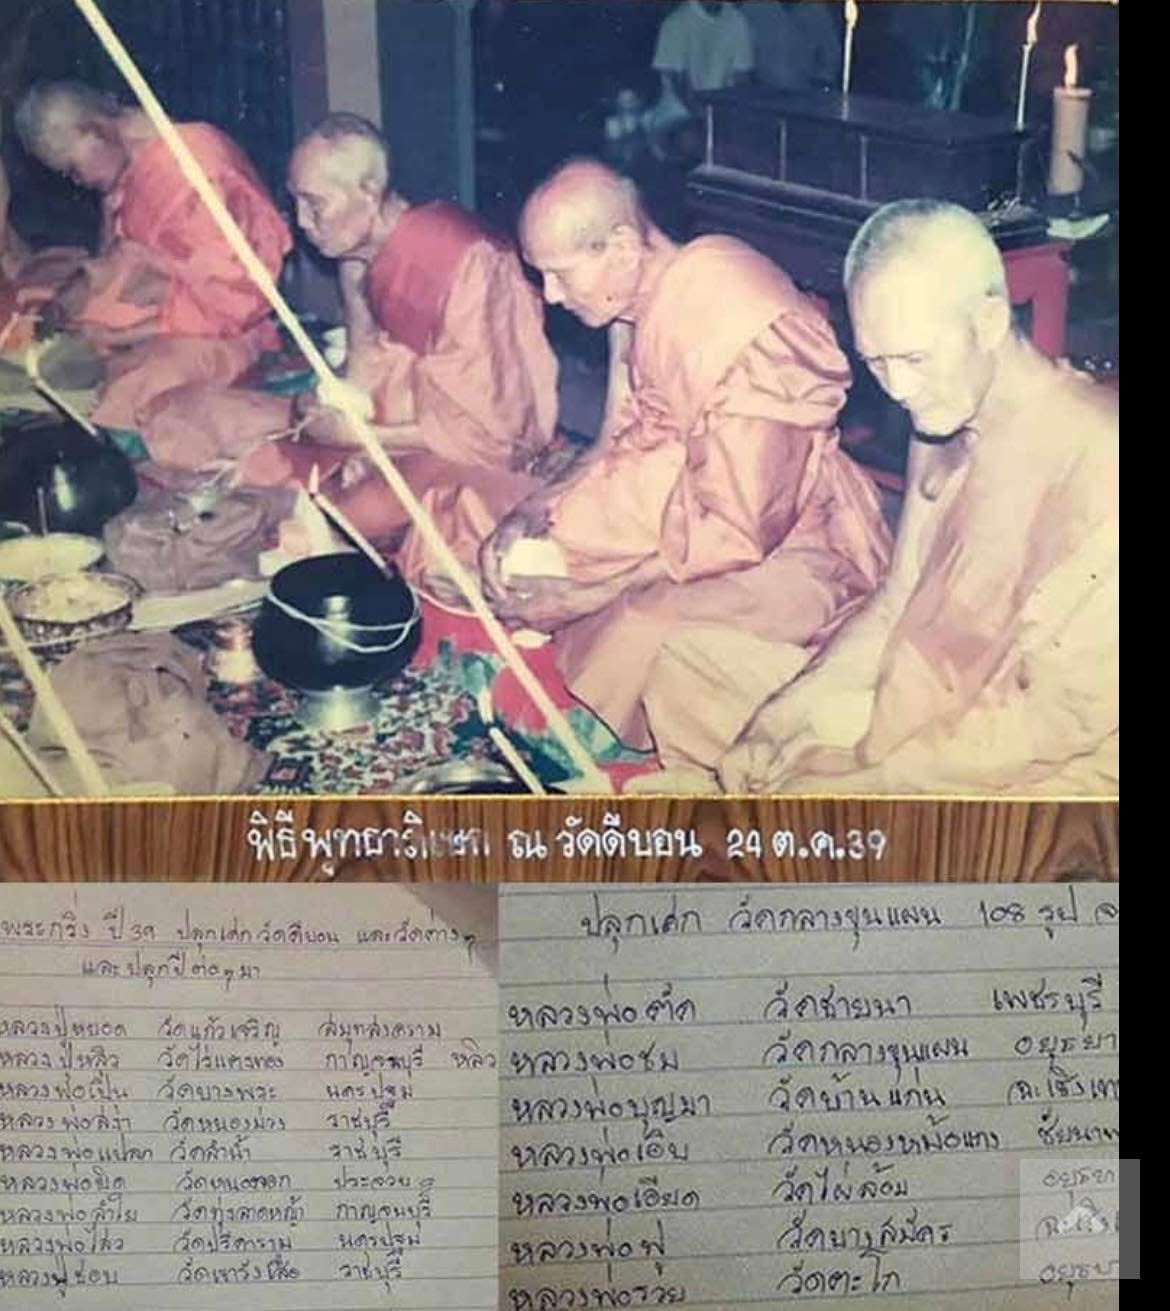 พิธีพุทธาภิเษก ณ วัดดีบอน 24 ต.ค.39
พระกริ่ง ปี 39 ปลุกเสก วัดดีบอน และวัดต่างๆ
และปลุกปีต่อๆมา
หลวงปู่หยอด วัดแก้วเจริญ สมุทสงคราม
หลวงปู่หลิว วัดไร่แตงทอง กาญจนบุรี หลิว
หลวงพ่อเปิ่น วัดบางพระ นครปฐม
หลวงพ่อสง่า วัดหนองม่วง ราชบุรี
หลวงพ่อแปลก วัดลำน้ำ ราชบุรี
หลวงพ่อยิด วัดหนองจอก ประจวบ
หลวงพ่อลำใย วัดทุ่งลาดหญ้า กาญจนบุรี
หลวงพ่อไสว วัดปรีดาราม นครปฐม
หลวงปู่ชอบ วัดเขารังเสือ ราชบุรี
ปลุกเสก วัดกลางขุนแผน 108 รูป
หลวงพ่อตัด วัดชายนา เพชรบุรี
หลวงพ่อชม วัดกลางขุนแผน อยุธยา
หลวงพ่อบุญมา วัดบ้านแก่น ฉะเชิงเท
หลวงพ่อเอิบ วัดหนองหม้อแกง ชัยนาท
หลวงพ่อเอียด วัดไผ่ล้อม อยุธยา
หลวงพ่อฟู วัดบางสมัคร ฉะเชิง
หลวงพ่อรวย วัดตะโก อยุธยา